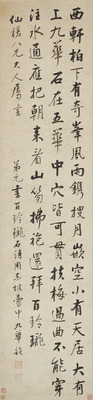 西軒柏下有奇峯風雨鐫搜月嵌空小有天居大有
上九華石在五華中穴皆可貫扶梅過曲不能穿
注水通應把朝來看山笏拂袍還拜百玲瓏
弟元書百玲瓏石詩用東坡壺中九華韻
仙槎八兄大人屬書